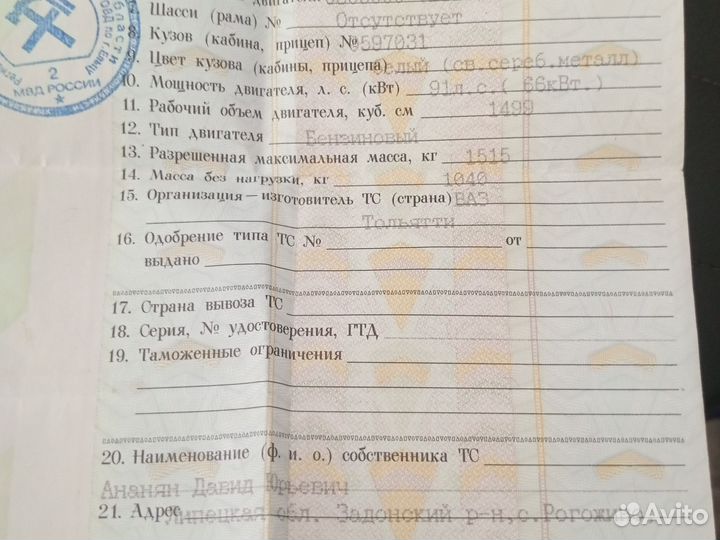 области
МВД РОССИИ
2
7. Шасси (рама) № Отсутствует
8. Кузов (кабина, прицеп) № 0597031
9. Цвет кузова (кабины, прицепа) белый (св.сереб.металл)
10. Мощность двигателя, л. с. (кВт) 91л.с.( 66кВт.)
11. Рабочий объем двигателя, куб. см 1499
12. Тип двигателя Бензиновый
13. Разрешенная максимальная масса, кг 1515
14. Масса без нагрузки, кг 1040
15. Организация—изготовитель ТС (страна) ВАЗ
Тольятти
16. Одобрение типа ТС № от
выдано
17. Страна вывоза ТС
18. Серия, № удостоверения, ГТД
19. Таможенные ограничения
20. Наименование (ф. и. о.) собственника ТС
Ананян Давид Юрьевич
21. Адрес Липецкая обл. Задонский р-н,с.Рогожи
Avito